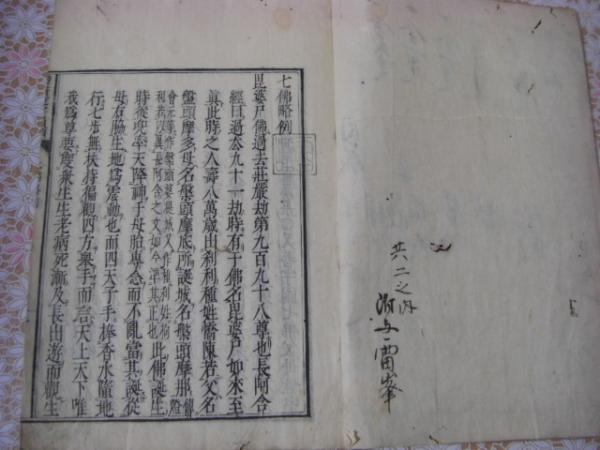 共二之内
雷峯
七佛略例
毘婆尸佛過去莊嚴劫第九百九十八尊也長阿含
經曰過去九十一劫時有佛名毘婆尸如來至
眞此時之人壽八萬歲出刹利種姓憍陳若父名
盤頭摩多母名盤頭摩底所護城名盤頭摩那
此佛誕生
時從兜率天降神于母胎專念而不亂當其誕從
母右脇生地爲震動也而四天王手捧香水隨地
行七步無扶持徧觀四方舉手而言天上天下唯
我爲尊要度衆生生老病死漸及長出遊而觀生